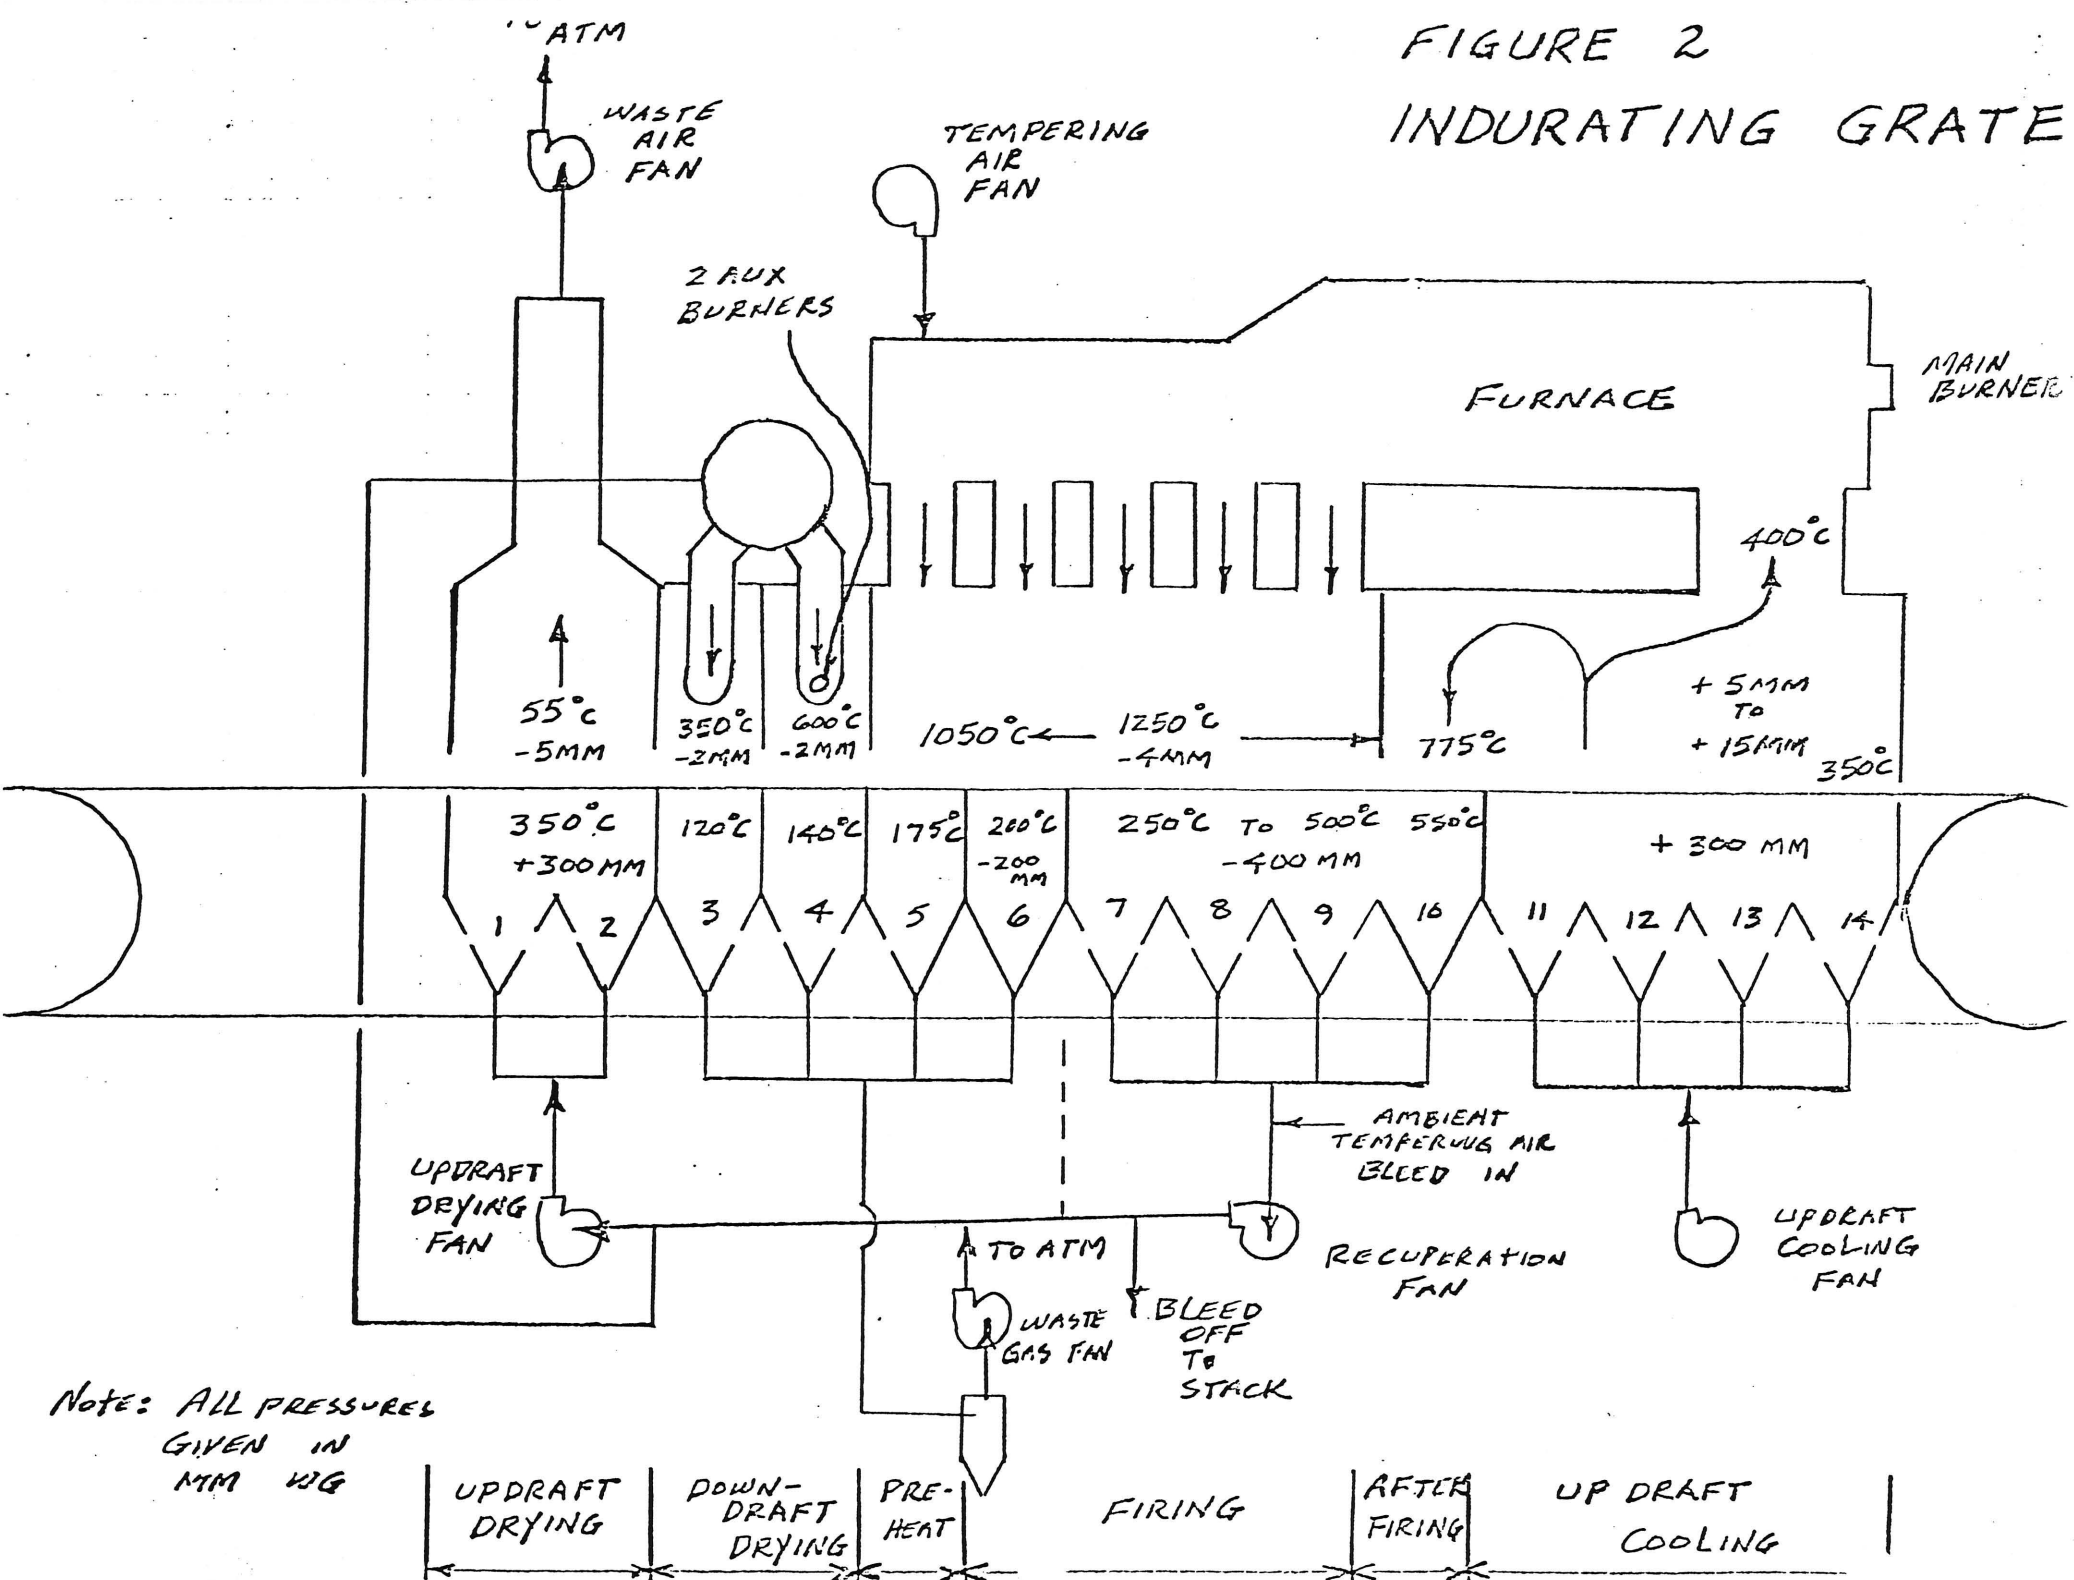 FIGURE 2
INDURATING GRATE
ATM
WASTE
AIR
FAN
TEMPERING
AIR
FAN
2 AUX
BURNERS
FURNACE
MAIN
BURNER
400°C
55°C
-5MM
350°C
-2MM
600°C
-2MM
1050°C
1250°C
-4MM
775°C
+ 5MM
TO
+ 15MM
350°C
350°C
+300MM
120°C
140°C
175°C
200°C
-200
MM
250°C TO 500°C 550°C
-400 MM
+ 300 MM
1 2 3 4 5 6 7 8 9 10 11 12 13 14
AMBIENT
TEMPERING AIR
BLEED IN
UPDRAFT
DRYING
FAN
TO ATM
WASTE
GAS FAN
BLEED
OFF
TO
STACK
RECUPERATION
FAN
UPDRAFT
COOLING
FAN
Note: ALL PRESSURES
GIVEN IN
MM WG
UPDRAFT
DRYING
DOWN-
DRAFT
DRYING
PRE-
HEAT
FIRING
AFTER
FIRING
UP DRAFT
COOLING